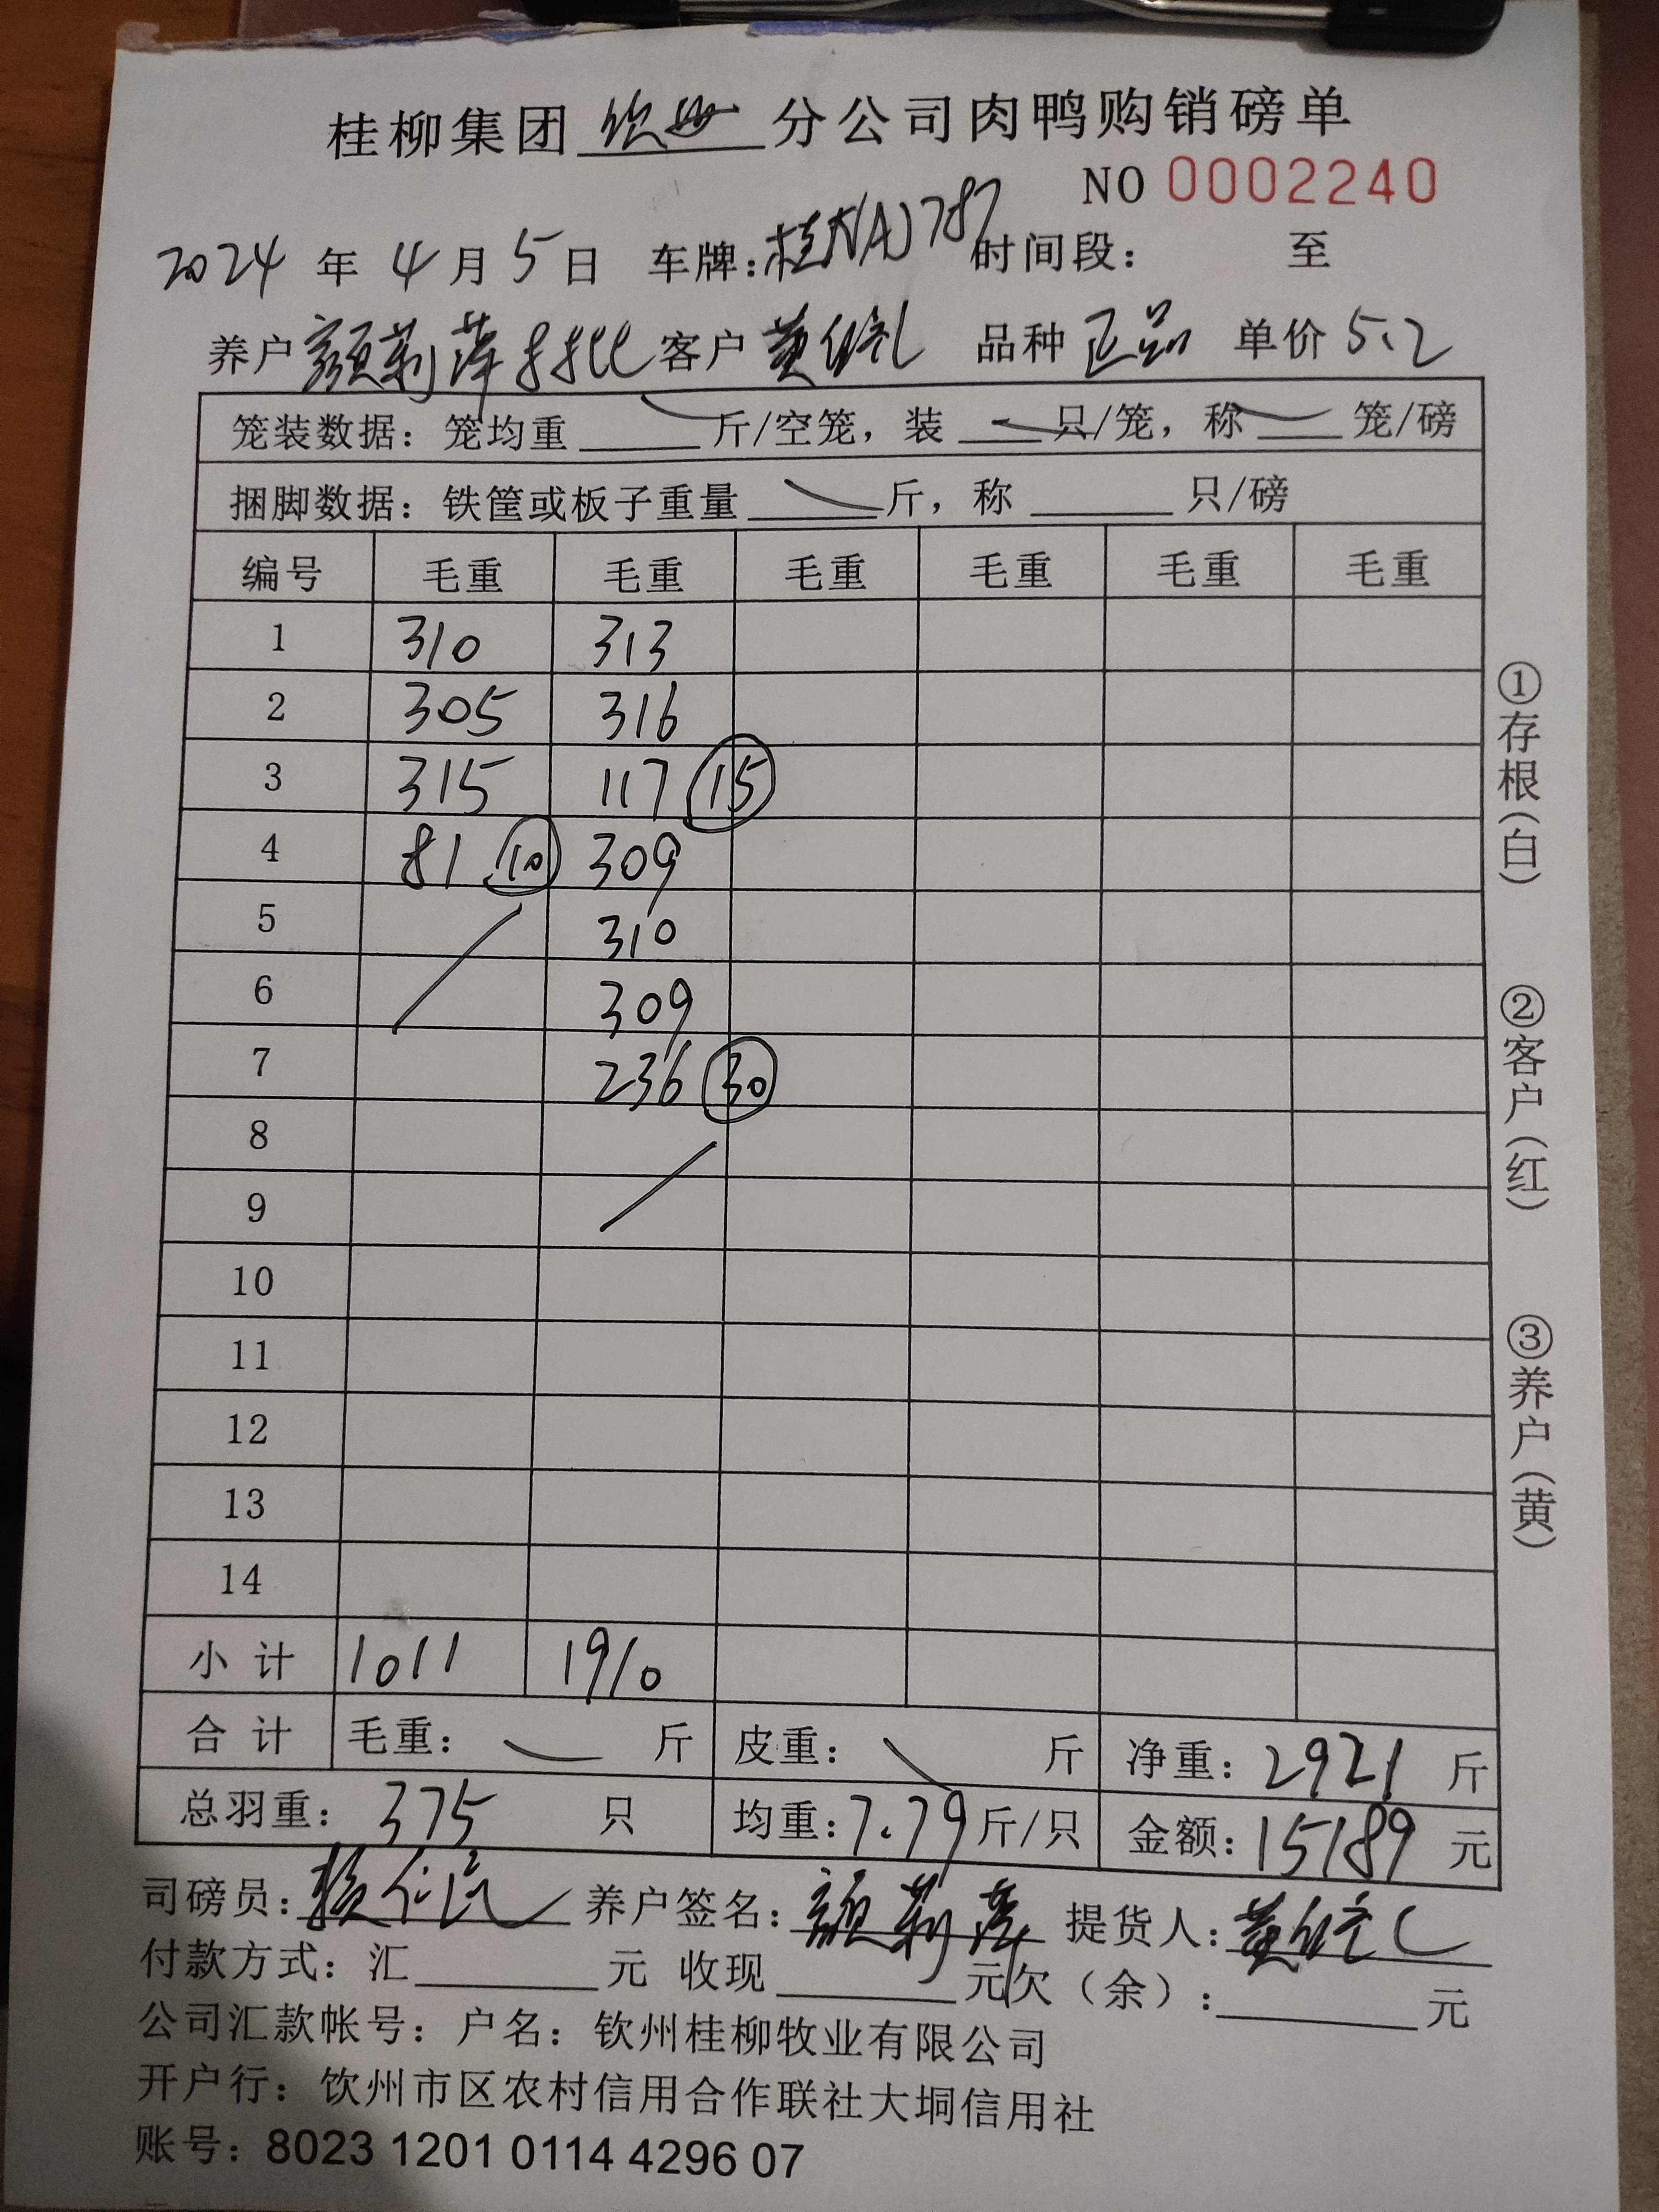 桂柳集团 钦州 分公司肉鸭购销磅单
NO 0002240
2024 年 4 月 5 日 车牌: 桂N(A)787 时间段: 至
养户 颜莉萍 客户 黄 品种 正品 单价 5.2
笼装数据: 笼均重 斤/空笼, 装 只/笼, 称 笼/磅
捆脚数据: 铁筐或板子重量 斤, 称 只/磅
编号 毛重 毛重 毛重 毛重 毛重 毛重
1 310 313
2 305 316
3 315 117 15
4 81 10 309
5 310
6 309
7 236 30
8
9
10
11
12
13
14
小计 1011 1910
合计 毛重: 斤 皮重: 斤 净重: 2921 斤
总羽重: 375 只 均重: 7.79 斤/只 金额: 15189 元
司磅员: 养户签名: 颜莉萍 提货人: 黄
付款方式: 汇 元 收现 元 欠(余): 元
公司汇款帐号: 户名: 钦州桂柳牧业有限公司
开户行: 钦州市区农村信用合作联社大垌信用社
账号: 8023 1201 0114 4296 07
①存根(白)
②客户(红)
③养户(黄)